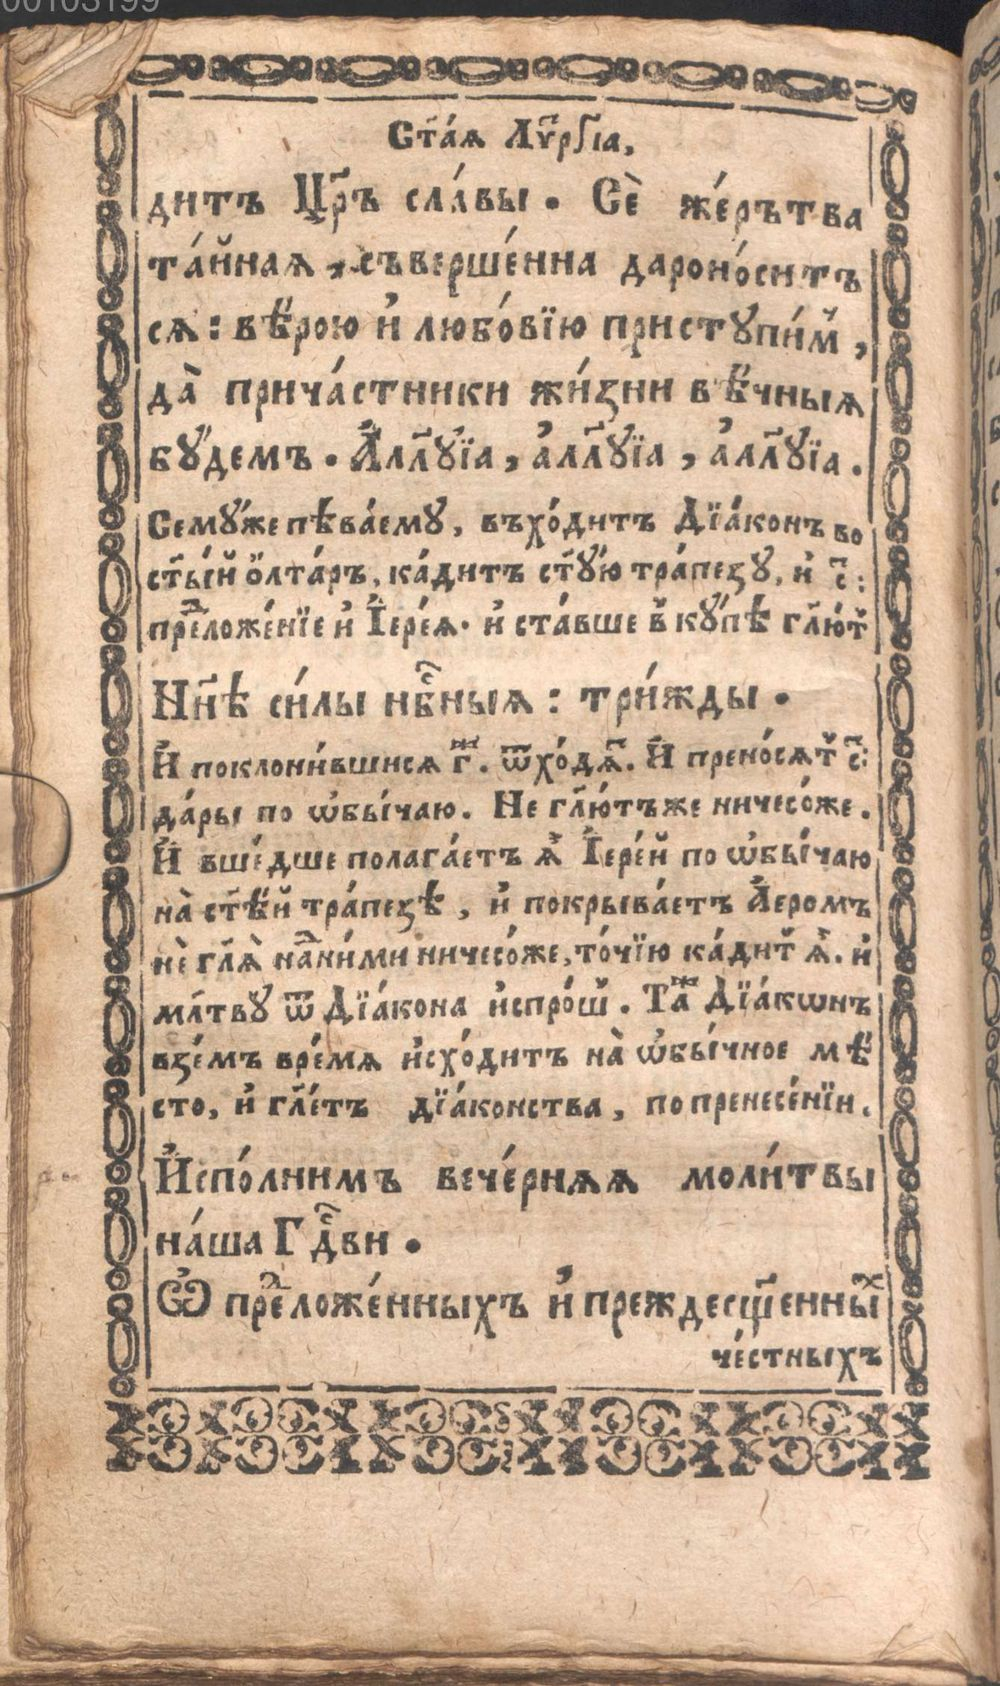 00103199
Ст҃а́ѧ Лѵ҃ргі́а,
дитъ Цр҃ъ сла́вы. Сѐ же́рътва
та́йнаѧ, съверше́нна дароно́ситъ
сѧ: вѣ́рою и҆ любо́вїю приступи́м̾,
да̀ прича́стники жи́зни вѣ́чныѧ
бꙋ́демъ. А҆лл҃ꙋїа, а҆лл҃ꙋїа, а҆лл҃ꙋїа.
Семꙋ́же пѣва́емꙋ, въхо́дитъ Дїа́конъ во
ст҃ы́й о҆лта́ръ, ка́дитъ ст҃ꙋ́ю тра́пезꙋ, и҆ с҃:
прⷣеложе́нїе и҆ І҆ере́ѧ. и҆ ста́вше в̾ кꙋ́пѣ гл҃ю́т̾
Нн҃ѣ си́лы нбⷭ҇ныѧ: три́жды.
И҆ поклони́вшисѧ гⷤ. ѿхо́дѧⷮ. И҆ прено́сѧт̾ с҃:
да́ры по ѡ҆бы́чаю. Не гл҃ю́тъже ничесо́же.
И҆ вше́дше полага́етъ ѧ҆̀ І҆ере́й по ѡ҆бы́чаю
на̀ ст҃ѣ́й тра́пезѣ, и҆ покрыва́етъ А҆́еромъ
нѐ гл҃ѧ̀ наⷣни́ми ничесо́же, то́чїю ка́дит̾ ѧ҆̀. и҆
мл҃твꙋ̀ ѿ Дїа́кона и҆спро́ш̾. Таⷤ Дїа́кѡнъ
взе́мъ вре́мѧ и҆схо́дитъ на̀ ѡ҆бы́чное мѣ́
сто, и҆ гл҃е́тъ дїа́конства, по пренесе́нїи.
И҆спо́лнимъ вече́рнѧѧ моли́твы
на́ша Гдⷭ҇ви.
Ѡ҆ прⷣеложе́нныхъ и҆ преждесщ҃е́нныⷯ
че́стныхъ